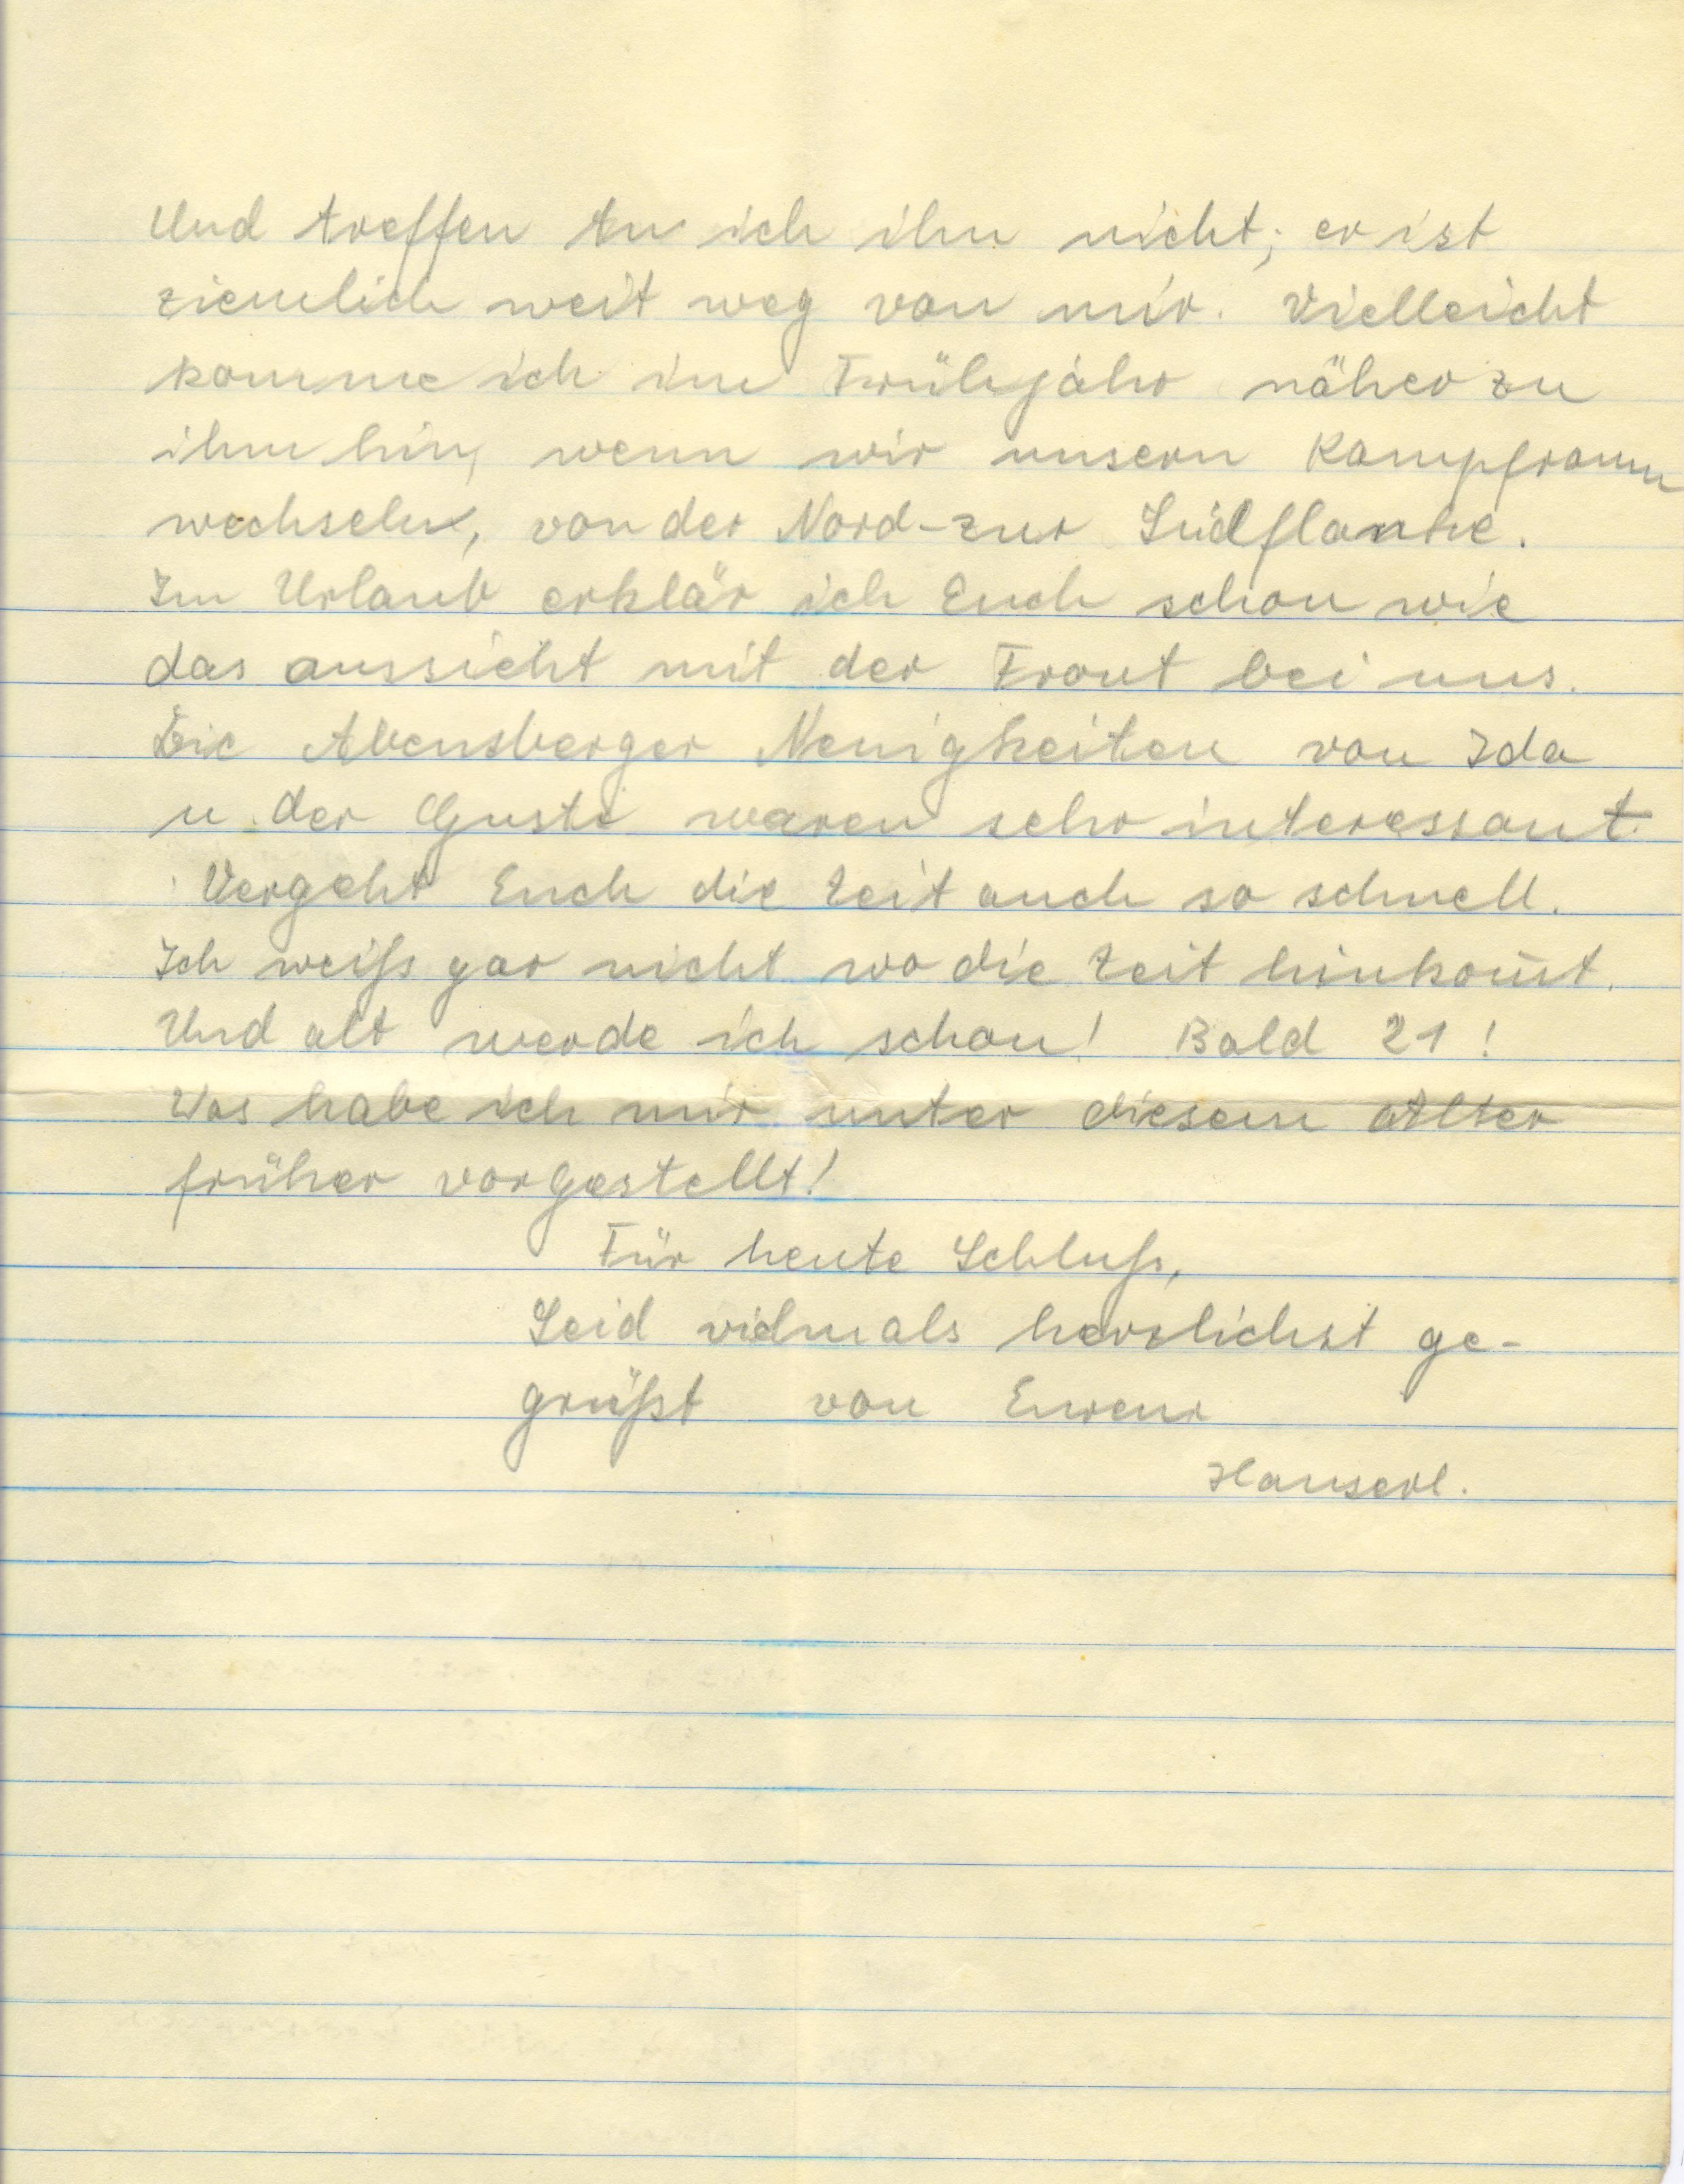 Und treffen tu ich ihn nicht; er ist
ziemlich weit weg von mir. Vielleicht
komme ich im Frühjahr näher zu
ihm hin, wenn wir unsern Kampfraum
wechseln, von der Nord-zur Südflanke.
Im Urlaub erklär ich Euch schon wie
das aussieht mit der Front bei uns.
Die Abensberger Neuigkeiten von Ida
u. der Gusti waren sehr interessant.
Vergeht Euch die Zeit auch so schnell.
Ich weiß gar nicht wo die Zeit hinkom̄t.
Und alt werde ich schon! Bald 21!
Was habe ich mir unter diesem Alter
früher vorgestellt!
Für heute Schluß,
Seid vielmals herzlichst ge-
grüßt von Eurem
Hanserl.